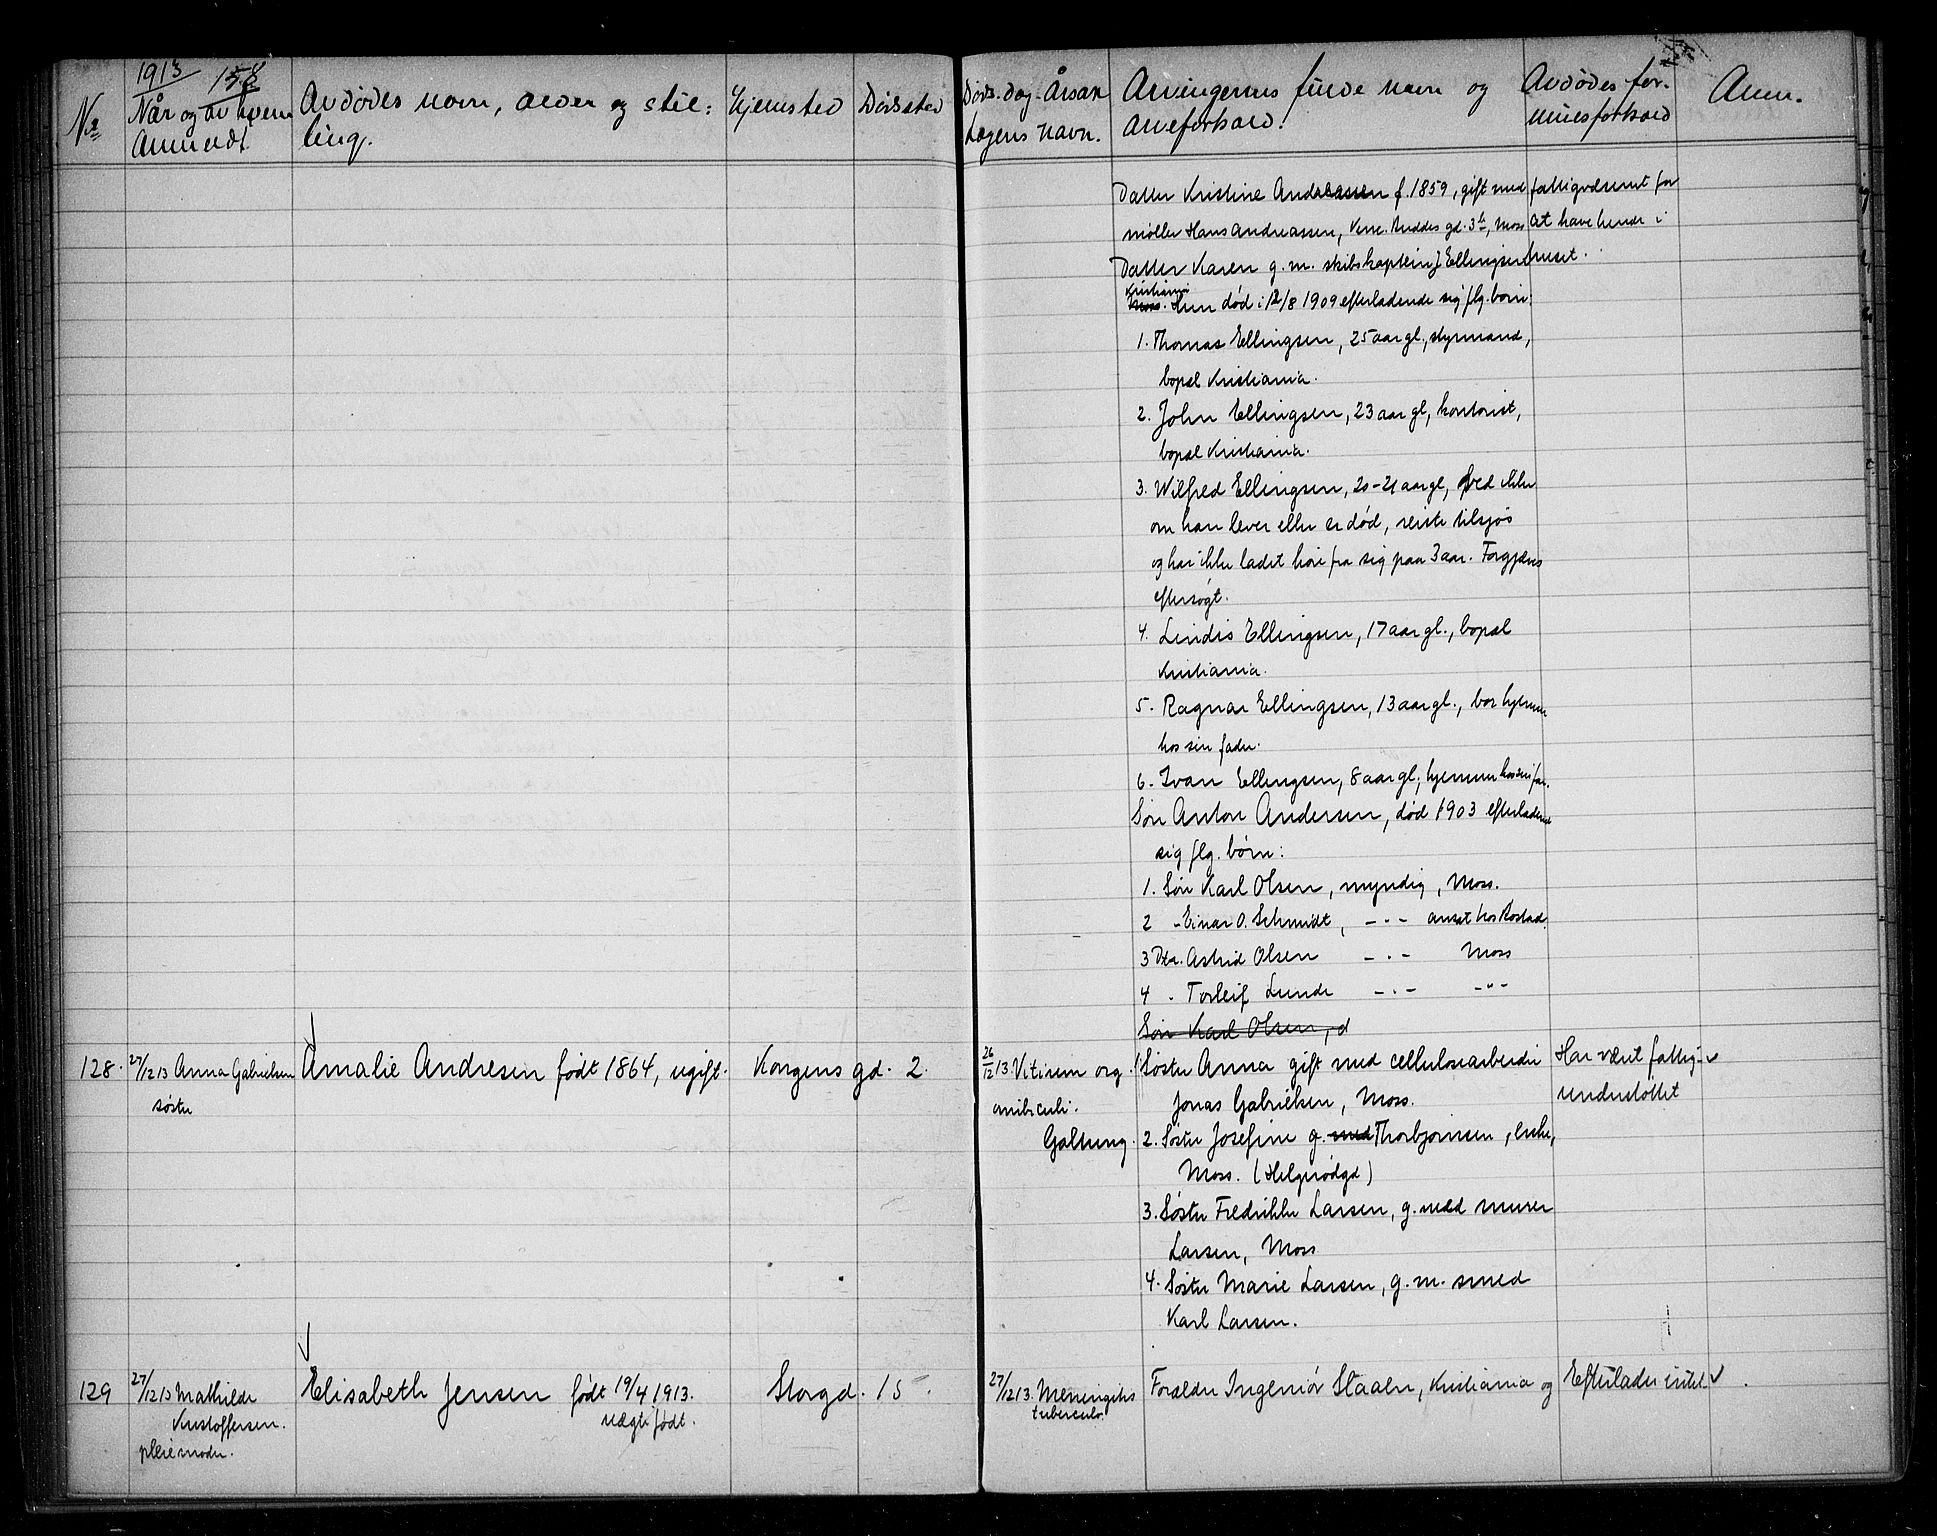 1913
No
Når og av hvem
Anmeldt
Avdødes navn, alder og stil:
ling.
Hjemsted
Dødssted
Døds. dag. Årsak
Lægens navn.
Arvingernes fulde navn og
Arveforhold.
Avdødes for-
muesforhold
Anm.
Datter Kristine Andreassen f. 1859, gift med
møller Hans Andreassen, gd. 3, Moss
fattigvæsenet for
at have hende i
huset.
Datter Karen g. m. skibskaptein J Ellingsen
Kristiania
Moss. Hun død: 12/8 1909 efterladende sig flg. børn:
1. Thomas Ellingsen, 25 aar gl., styrmand,
bopæl Kristiania.
2. John Ellingsen, 23 aar gl, kontorist,
bopæl Kristiania.
3. Wilfred Ellingsen, 20-21 aar gl, ved ikke
om han lever eller er død, reiste tilsjøs
og har ikke ladet høre fra sig paa 3 aar. Forgjæves
eftersøgt.
4. Lindis Ellingsen, 17 aar gl., bopæl
Kristiania.
5. Ragnar Ellingsen, 13 aar gl., bor hjemme
hos sin fader.
6. Ivan Ellingsen, 8 aar gl, hjemme hos sin far.
Søn Anton Andersen, død 1903 efterladende
sig flg. børn:
1. Søn Karl Olsen, myndig, Moss.
2 - Einar O. Schmidt, -.- ansat hos Rostad.
3 Dtr. Astrid Olsen -.- Moss
4 . Torleif Lunde -.- -"-
Søn Karl Olsen, d
128. 27/12 13 Anna Gabrielsen
søster
Amalie Andresen født 1864, ugift.
Kongens gd. 2.
26/12 13. Vitium org.
Galtung.
1. Søster Anna gift med cellulosearbeider
Jonas Gabrielsen, Moss.
Har vært fattig-
understøttet
2. Søster Josefine g. med Thorbjørnsen, enke,
Moss. (Helgerødgd)
3. Søster Fredrikke Larsen, g. med murer
Larsen, Moss
4. Søster Marie Larsen, g. m. smed
Karl Larsen.
129 27/12 13 Mathilde
Kristoffersen.
pleiemoder.
Elisabeth Jensen født 19/4 1913.
uægte født.
Storgd. 15.
27/12 13. Meningitis
tuberculo.
Forældre Ingeniør Staaln, Kristiania og
Efterlader intet